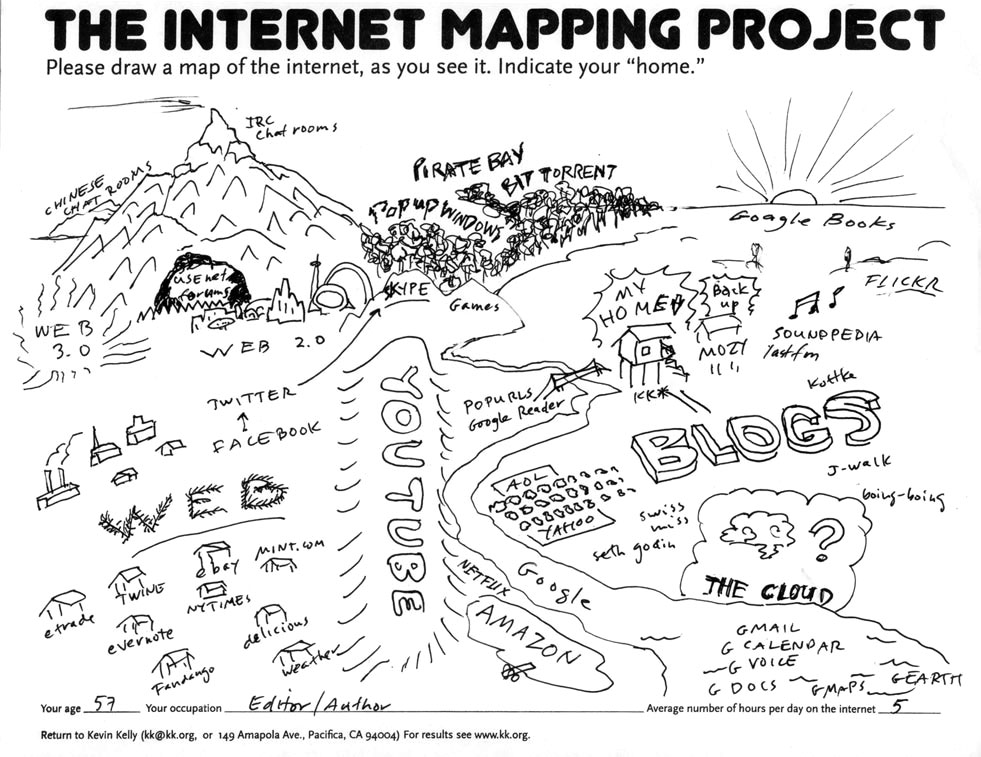 THE INTERNET MAPPING PROJECT
Please draw a map of the internet, as you see it. Indicate your “home.”
IRC
Chat rooms
CHINESE
CHAT ROOMS
PIRATE BAY
BIT TORRENT
POP UP WINDOWS
Google Books
usenet
forums
SKYPE
Games
MY
HOME
Back
up
MOZY
FLICKR
SOUNDPEDIA
lastfm
WEB
3.0
WEB 2.0
TWITTER
FACEBOOK
YOUTUBE
POPURLS
Google Reader
KK*
Kottke
BLOGS
J-walk
boing-boing
AOL
YAHOO
swiss
miss
seth godin
?
THE CLOUD
WEB
ebay
MINT.COM
TWINE
NYTIMES
etrade
evernote
delicious
Fandango
weather
NETFLIX
Google
AMAZON
GMAIL
G CALENDAR
G VOICE
G DOCS
GMAPS
GEARTH
Your age 57 Your occupation Editor/Author Average number of hours per day on the internet 5
Return to Kevin Kelly (kk@kk.org, or 149 Amapola Ave., Pacifica, CA 94004) For results see www.kk.org.